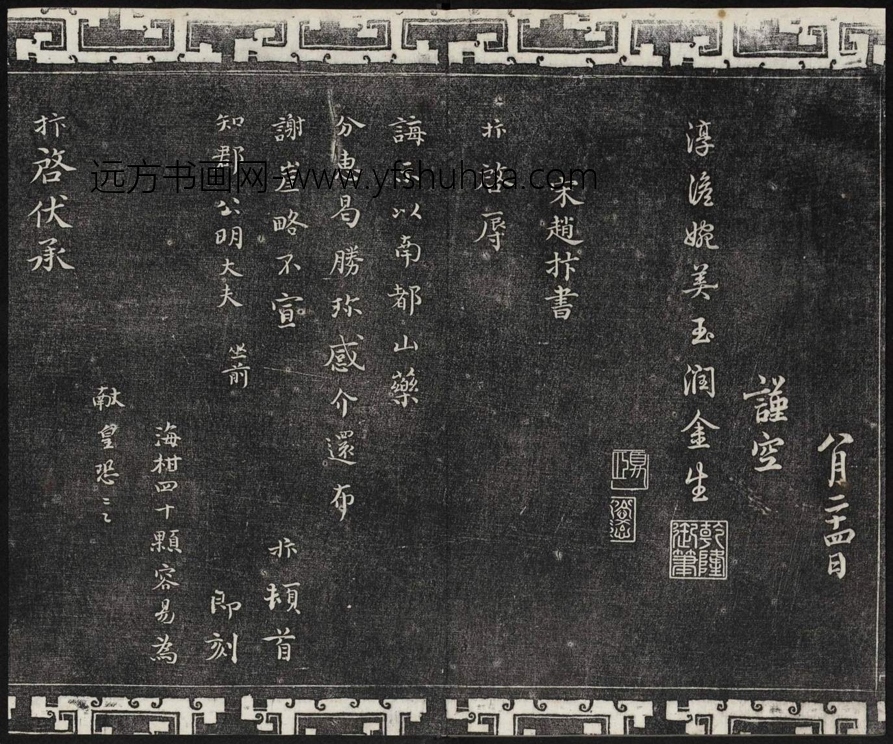 八月二十四日
謹空
淳澹婉美玉潤金生
乾隆御筆
宋趙抃書
抃啓辱
誨存以南都山藥
分惠曷勝珍感介還布
謝岂略不宣
抃頓首
知郡公明大夫 坐前
即刻
海柑四十顆容易為
献皇恐〻
抃啓伏承
远方书画网-www.yfshuhua.com